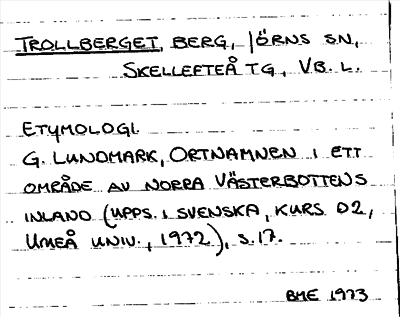 TROLLBERGET, BERG, JÖRNS SN,
SKELLEFTEÅ TG, VB. L.
ETYMOLOGI.
G. LUNDMARK, ORTNAMNEN I ETT
OMRÅDE AV NORRA VÄSTERBOTTENS
INLAND (UPPS. I SVENSKA, KURS D2,
UMEÅ UNIV., 1972), S. 17.
BME 1973